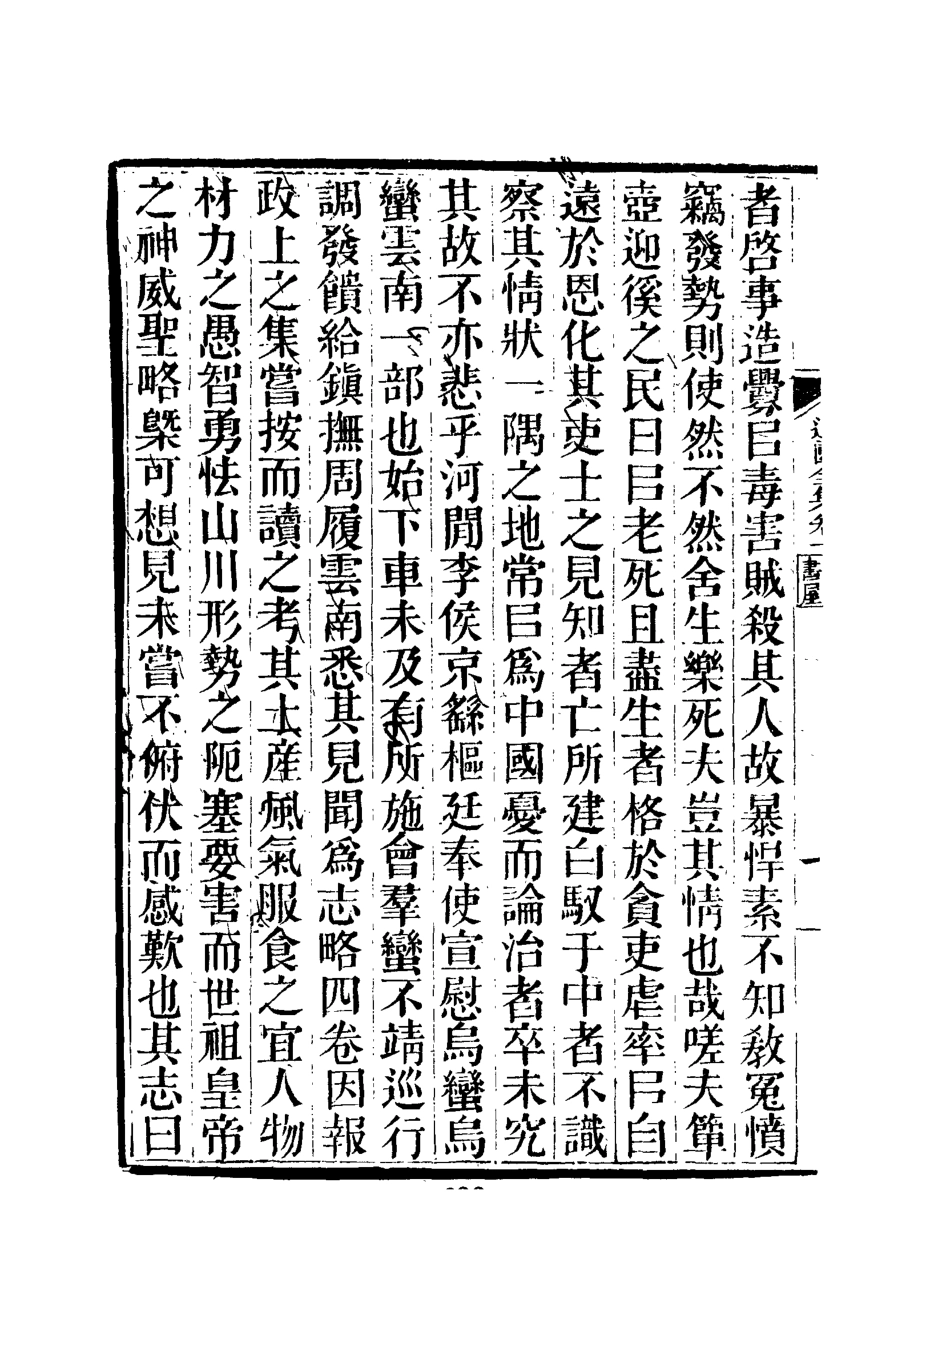 者啓事造釁㠯毒害賊殺其人故暴悍素不知敎冤憤
竊發勢則使然不然舍生樂死夫豈其情也哉嗟夫簞
壺迎徯之民日㠯老死且盡生者格於貪吏虐率㠯自
遠於恩化其吏士之見知者亡所建白馭于中者不識
察其情狀一隅之地常㠯爲中國憂而論治者卒未究
其故不亦悲乎河閒李侯京繇樞廷奉使宣慰烏蠻烏
蠻雲南一部也始下車未及有所施會羣蠻不靖巡行
調發饋給鎭撫周履雲南悉其見聞爲志略四卷因報
政上之集嘗按而讀之考其土產風氣服食之宜人物
材力之愚智勇怯山川形勢之阨塞要害而世祖皇帝
之神威聖略槩可想見未嘗不俯伏而感歎也其志曰
書屋